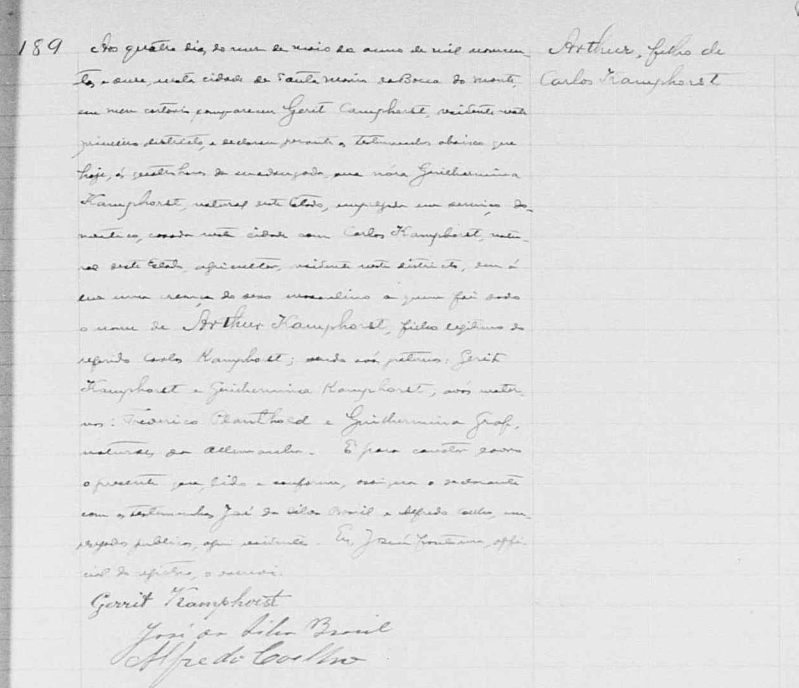 189
Arthur, filho de
Carlos Kamphorst
Aos quatro dias do mez de maio do anno de mil novecen-
tos e onze, nesta cidade de Santa Maria da Bocca do Monte,
em meu cartorio, compareceu Gerit Camphorst, residente neste
primeiro districto, e declarou perante as testemunhas abaixo que
hoje, ás quatro horas da madrugada, sua nóra Guilhermina
Kamphorst, natural deste Estado, empregada em serviço do-
mestico, casada nesta cidade com Carlos Kamphorst, natu-
ral deste Estado, agricultor, residente neste districto, deu á
luz uma creança do sexo masculino a quem foi dado
o nome de Arthur Kamphorst, filho legitimo do
referido Carlos Kamphorst; sendo avós paternos: Gerit
Kamphorst e Guilhermina Kamphorst, avós mater-
nos: Frederico e Guilhermina Graf,
naturaes da Allemanha. E para constar lavro
o presente que, lido e conforme, assigna o declarante
com as testemunhas José da Silva Brasil e Alfredo Coelho, em-
pregados publicos, aqui residentes. Eu, José, offi-
cial do registro, o escrevi.
Gerrit Kamphorst
José da Silva Brasil
Alfredo Coelho